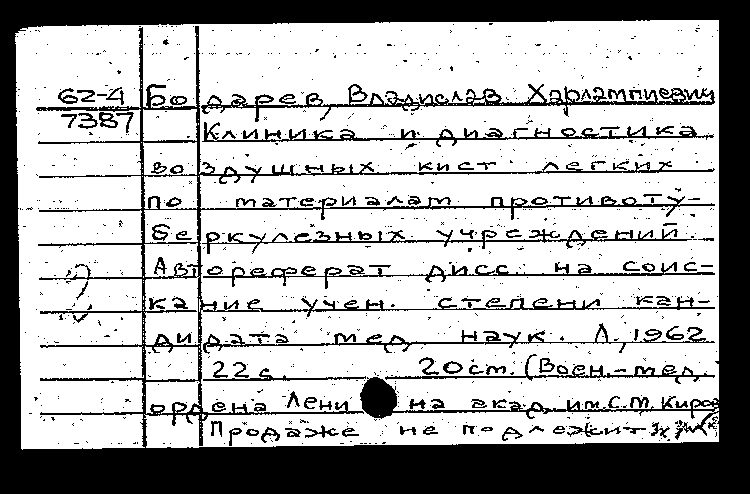 62-4 Бодарев, Владислав Харлампиевич
7387 Клиника и диагностика
воздушных кист легких
по материалам противоту-
беркулезных учреждений.
Автореферат дисс. на соис-
2
кание учен. степени кан-
дидата мед. наук. Л., 1962
22 с. 20 ст. (Воен.-мед.
ордена Ленина акад. им. С.М. Киров
Продаже не подлежит